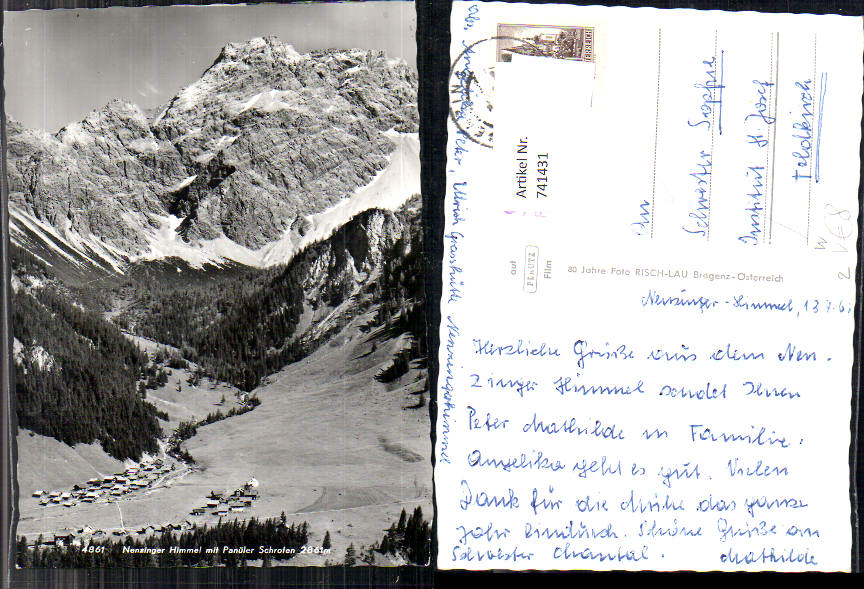 4861 Nenzinger Himmel mit Panüler Schrofen 2861m
Artikel Nr.
741431
An
Schwester
Institut St. Josef
Feldkirch
W
2 V€8
auf
PERUTZ
Film
80 Jahre Foto RISCH-LAU Bregenz-Österreich
Nenzinger-Himmel, 13.7.6
Herzliche Grüße aus dem Nen-
zinger Himmel sendet Ihnen
Peter Mathilde u Familie.
Angelika geht es gut. Vielen
Dank für die Mühe das ganze
Jahr hindurch. Schöne Grüße an
Schwester Chantal. Mathilde
Abs. Angelika, Peter, Ulrich Nenzingerhimmel